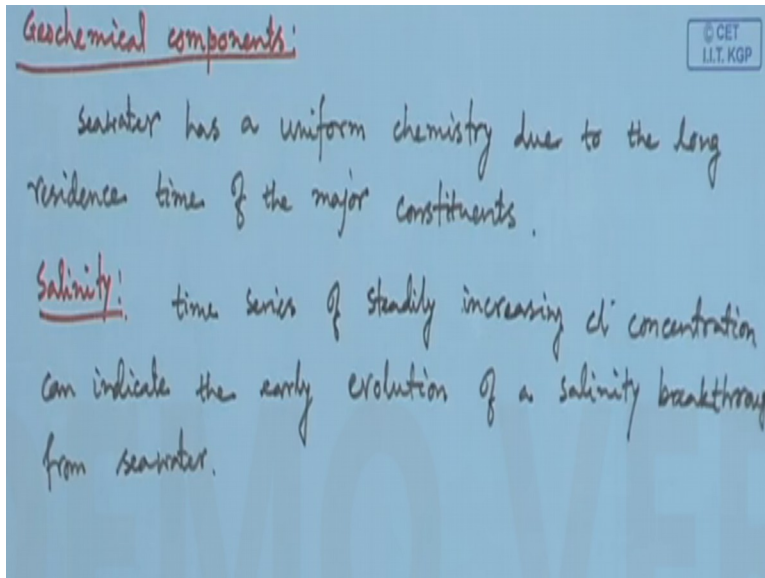 Geochemical components:
© CET
I.I.T. KGP
Seawater has a uniform chemistry due to the long
residence time of the major constituents.
Salinity: time series of steadily increasing cl⁻ concentration
can indicate the early evolution of a salinity breakthroug
from seawater.
DEMO VE